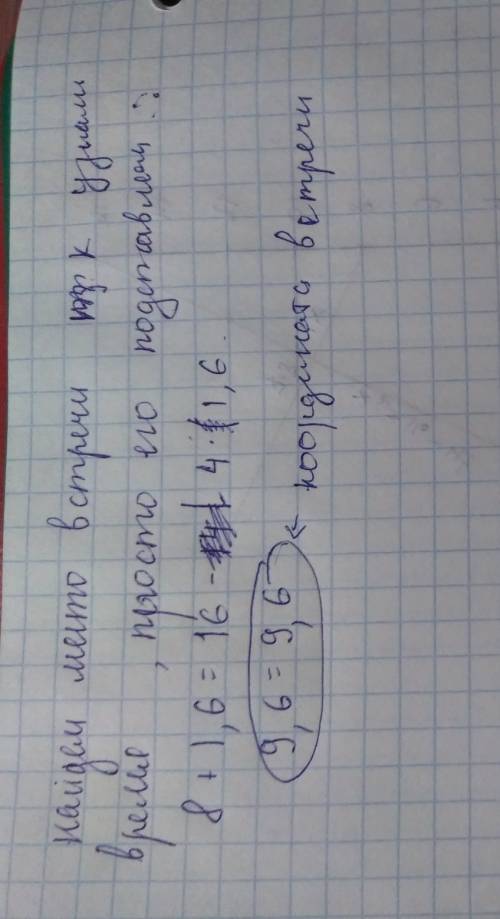 Найдем место встречи т к узнали
время, просто его подставляем :
8 + 1,6 = 16 - 4 · 1,6.
9,6 = 9,6 ← координата встречи